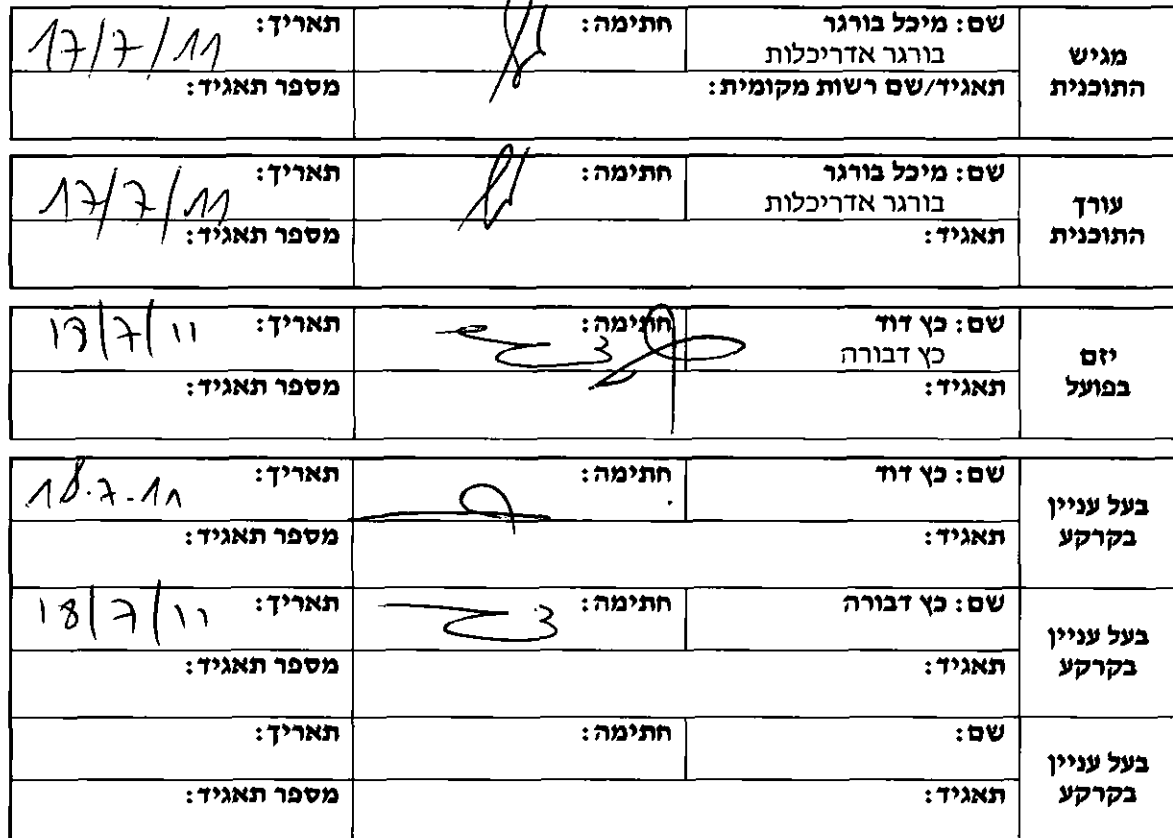 מגיש התוכנית
שם: מיכל בורגר
בורגר אדריכלות
חתימה:
תאריך: 17/7/11
תאגיד/שם רשות מקומית:
מספר תאגיד:
עורך התוכנית
שם: מיכל בורגר
בורגר אדריכלות
חתימה:
תאריך: 17/7/11
תאגיד:
מספר תאגיד:
יזם בפועל
שם: כץ דוד
כץ דבורה
חתימה:
תאריך: /7/11
תאגיד:
מספר תאגיד:
בעל עניין בקרקע
שם: כץ דוד
חתימה:
תאריך: 18.7.11
תאגיד:
מספר תאגיד:
בעל עניין בקרקע
שם: כץ דבורה
חתימה:
תאריך: 18/7/11
תאגיד:
מספר תאגיד:
בעל עניין בקרקע
שם:
חתימה:
תאריך:
תאגיד:
מספר תאגיד: